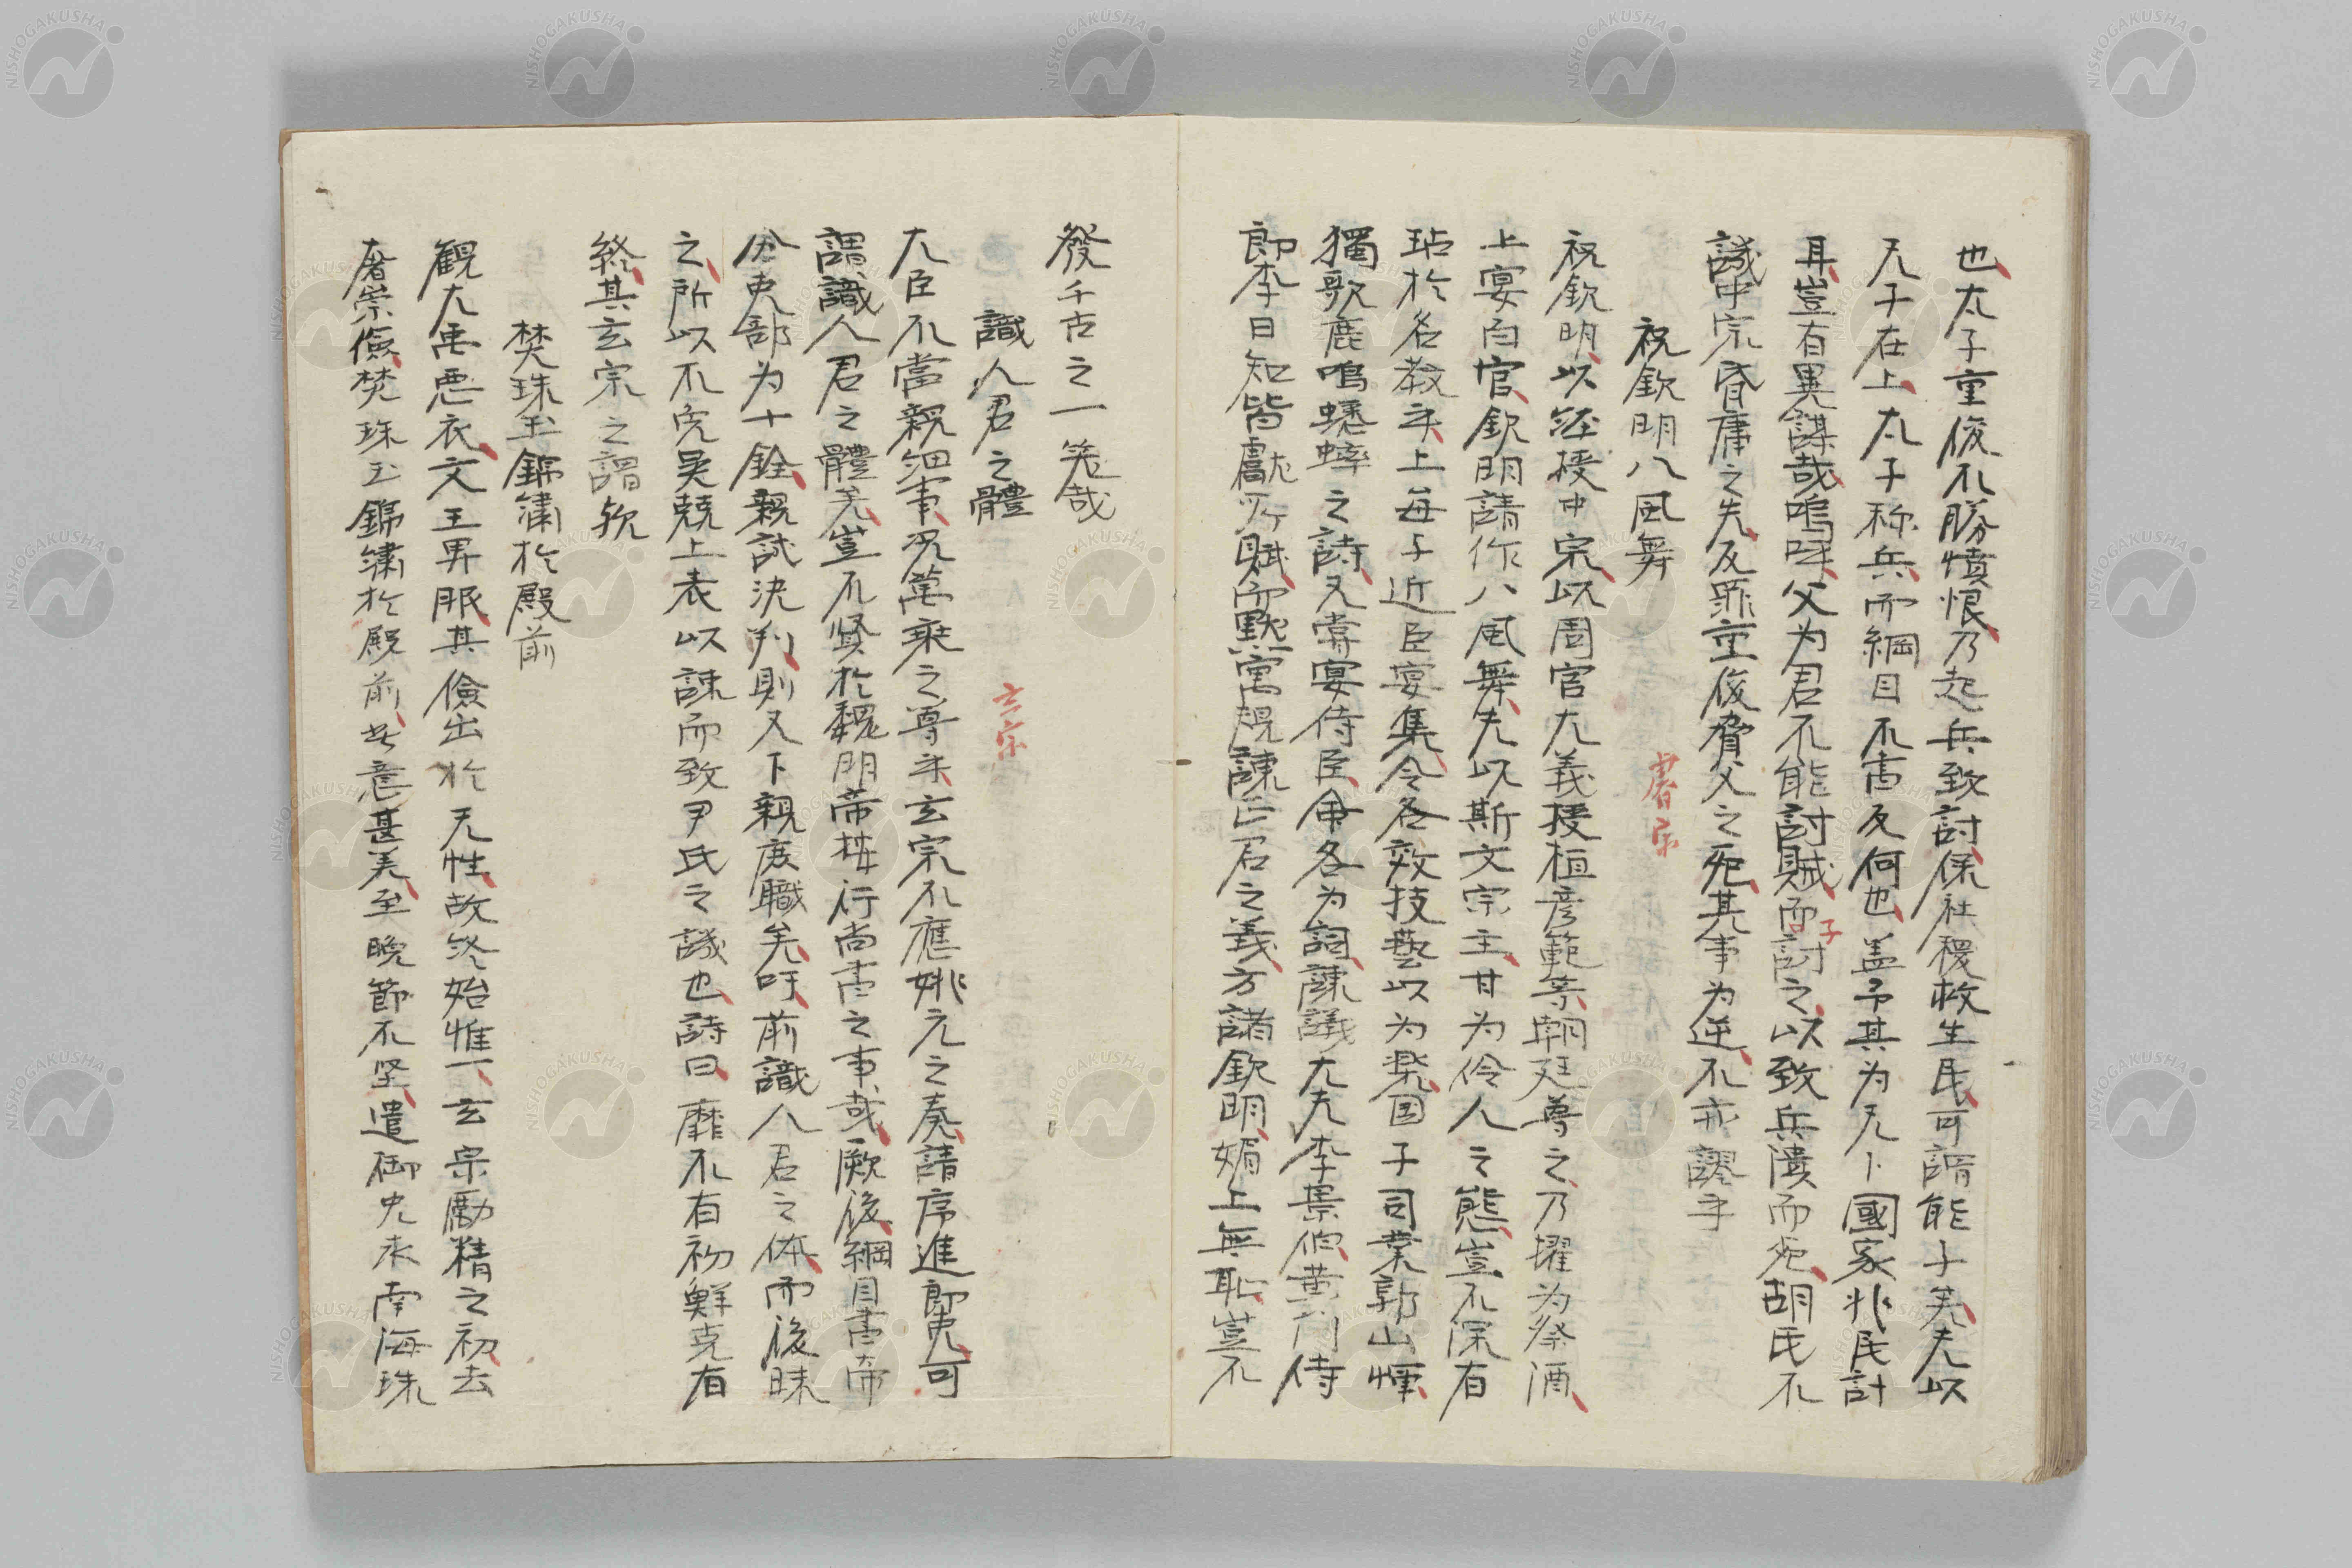 也太子重俊不勝憤恨乃起兵致討保社稷救生民可謂能子矣夫以
天子在上太子称兵而綱目不書反何也盖予其为天下國家兆民計
耳豈有異謀哉嗚呼父为君不能討賊而子討之以致兵潰而死胡氏不
譏中宗昏庸之失反罪重俊脅父之死其事为逆不亦謬乎
祝欽明八風舞
睿宗
祝欽明以経授中宗以周官大義授桓彦範等朝廷尊之乃擢为祭酒
上宴百官欽明請作八風舞夫以斯文宗主甘为伶人之態豈不深有
玷於名教乎上每与近臣宴集令各效技藝以为楽国子司業郭山惲
獨歌鹿鳴蟋蟀之詩又嘗宴侍臣命各为詞諫議大夫李景伯黄门侍
郎李日知皆獻所賦而黙寓規諫正君之義方諸欽明媚上無恥豈不
發千古之一笑哉
識人君之體
玄宗
大臣不當親細事况萬乗之尊乎玄宗不應姚元之奏請序進郎吏可
謂識人君之體矣豈不賢於魏明帝按行尚書之事哉厥後綱目書帝
分吏部为十銓親試決判則又下親庶職矣吁前識人君之体而後昧
之所以不免吴兢上表以諫而致尹氏之譏也詩曰靡不有初鮮克有
終其玄宗之謂欤
焚珠玉錦繡於殿前
觀大禹悪衣文王卑服其儉出於天性故終始惟一玄宗勵精之初去
奢崇儉焚珠玉錦繡於殿前此意甚美至晩節不坚遣御史求南海珠